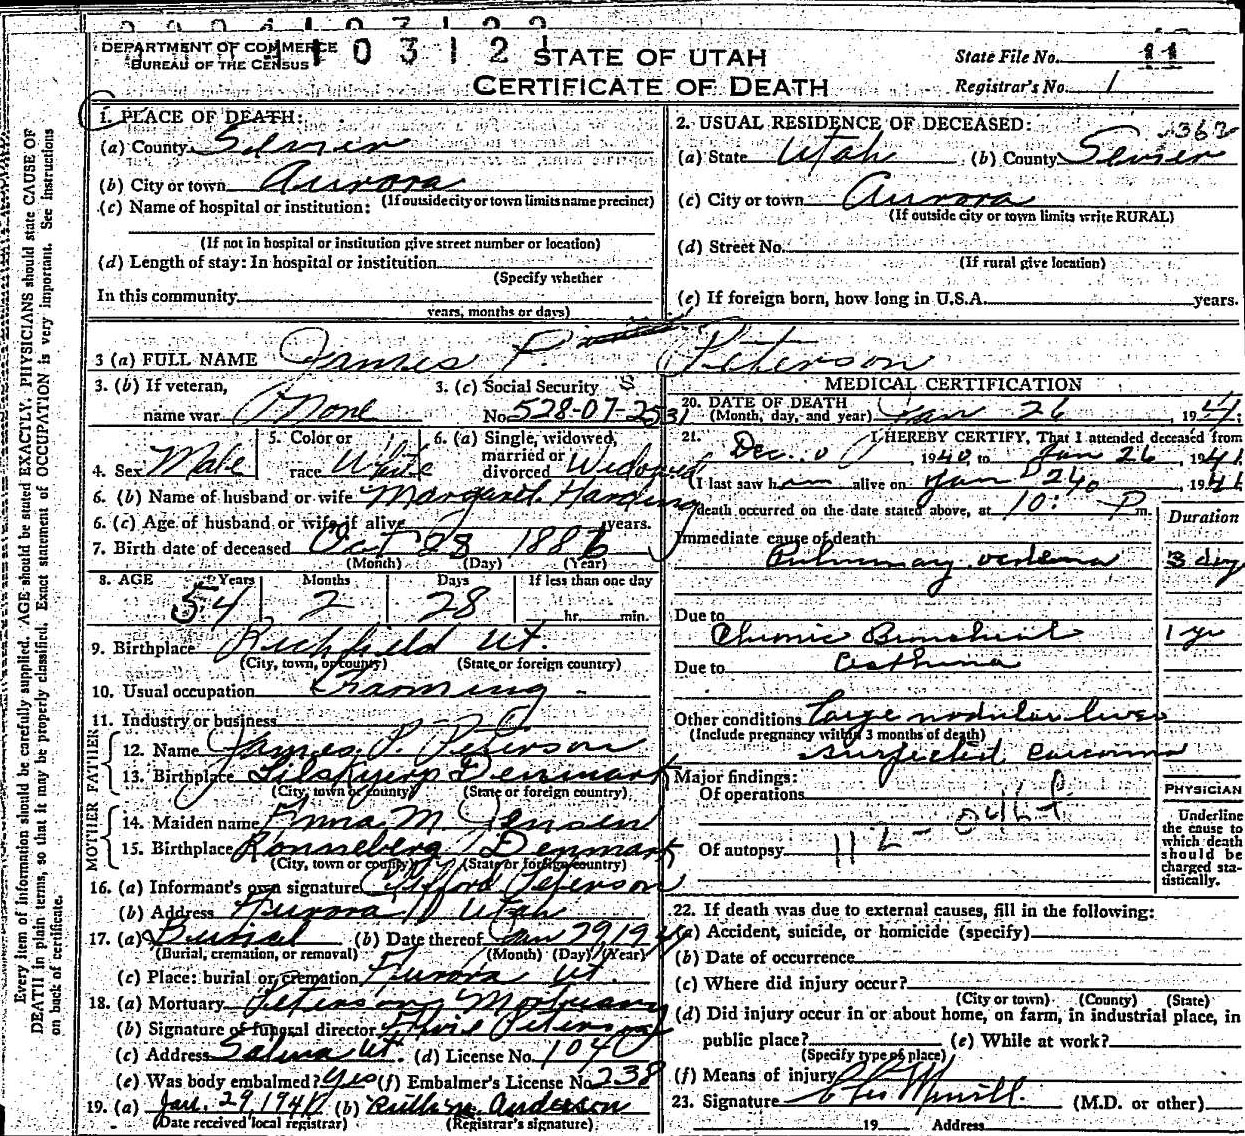 DEPARTMENT OF COMMERCE
BUREAU OF THE CENSUS
STATE OF UTAH
CERTIFICATE OF DEATH
State File No. 11
Registrar's No. 1
Every item of information should be carefully supplied. AGE should be stated EXACTLY. PHYSICIANS should state CAUSE OF
DEATH in plain terms, so that it may be properly classified. Exact statement of OCCUPATION is very important. See instructions
on back of certificate.
1. PLACE OF DEATH:
(a) County
(b) City or town Aurora
(If outside city or town limits name precinct)
(c) Name of hospital or institution:
(If not in hospital or institution give street number or location)
(d) Length of stay: In hospital or institution
(Specify whether
In this community
years, months or days)
2. USUAL RESIDENCE OF DECEASED:
362
(a) State Utah (b) County Sevier
(c) City or town Aurora
(If outside city or town limits write RURAL)
(d) Street No.
(If rural give location)
(e) If foreign born, how long in U.S.A. years.
3 (a) FULL NAME James P. Peterson
3. (b) If veteran,
name war None
3. (c) Social Security
No. 528-07-2531
4. Sex Male
5. Color or
race White
6. (a) Single, widowed,
married or
divorced Widowed
6. (b) Name of husband or wife Margaret Harding
6. (c) Age of husband or wife if alive years.
7. Birth date of deceased Oct 28 1886
(Month) (Day) (Year)
8. AGE Years Months Days If less than one day
54 2 28 hr. min.
9. Birthplace Richfield Ut.
(City, town, or county) (State or foreign country)
10. Usual occupation Farming
11. Industry or business
FATHER
12. Name James P. Peterson
13. Birthplace Denmark
(City, town or county) (State or foreign country)
MOTHER
14. Maiden name Anna M Jensen
15. Birthplace Denmark
(City, town or county) (State or foreign country)
16. (a) Informant's own signature Clifford Peterson
(b) Address Aurora Utah
17. (a) Burial (b) Date thereof Jan 29 1941
(Burial, cremation, or removal) (Month) (Day) (Year)
(c) Place: burial or cremation Aurora Ut.
18. (a) Mortuary Peterson Mortuary
(b) Signature of funeral director Peterson
(c) Address Salina Ut. (d) License No. 104
(e) Was body embalmed? Yes (f) Embalmer's License No. 238
19. (a) Jan. 29, 1941 (b) Anderson
(Date received local registrar) (Registrar's signature)
MEDICAL CERTIFICATION
20. DATE OF DEATH
(Month, day, and year) Jan 26 1941;
21. I HEREBY CERTIFY, That I attended deceased from
Dec. 1940, to Jan 26, 1941
I last saw him alive on Jan 24, 1941
death occurred on the date stated above, at 10: P m.
Duration
Immediate cause of death
Pulmonary oedema 3 dy
Due to
Chronic Bronchial 1 yr
Due to Asthma
Other conditions Large nodular liver
(Include pregnancy within 3 months of death)
suspected carcinoma
Major findings:
Of operations
Of autopsy 112
PHYSICIAN
Underline
the cause to
which death
should be
charged sta-
tistically.
22. If death was due to external causes, fill in the following:
(a) Accident, suicide, or homicide (specify)
(b) Date of occurrence
(c) Where did injury occur?
(City or town) (County) (State)
(d) Did injury occur in or about home, on farm, in industrial place, in
public place? (e) While at work?
(Specify type of place)
(f) Means of injury
23. Signature (M.D. or other)
19 Address